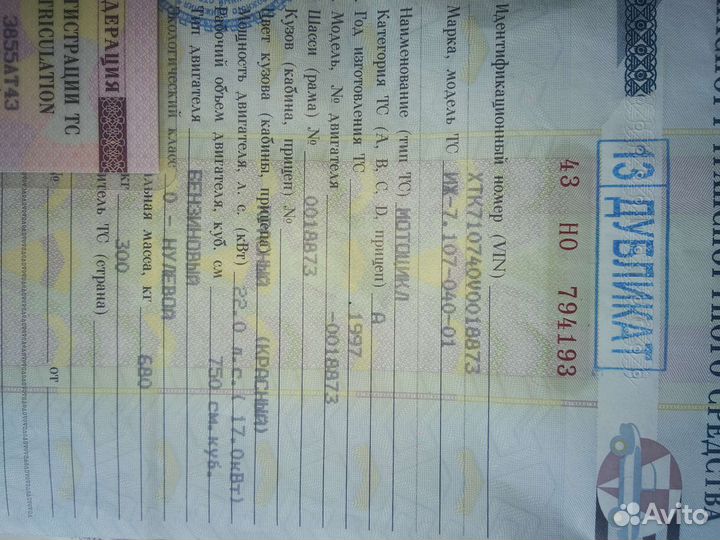 СРЕДСТВА
13 ДУБЛИКАТ
43 НО 794193
Идентификационный номер (VIN) ХТК710740V0018873
Марка, модель ТС ИЖ-7.107-040-01
Наименование (тип ТС) МОТОЦИКЛ
Категория ТС (А, В, С, D, прицеп) А
Год изготовления ТС 1997
Модель, № двигателя -0018873
Шасси (рама) № 0018873
Кузов (кабина, прицеп) №
Цвет кузова (кабины, прицепа) (КРАСНЫЙ)
Мощность двигателя, л. с. (кВт) 22.0 л.с. ( 17.0кВт)
Рабочий объем двигателя, куб. см 750 см.куб.
Тип двигателя БЕНЗИНОВЫЙ
Экологический класс 0 - НУЛЕВОЙ
масса, кг 680
кг 300
ТС (страна)
№ от
ДЕРАЦИЯ
ГИСТРАЦИИ ТС
TRICULATION
3855АТ43
Avito